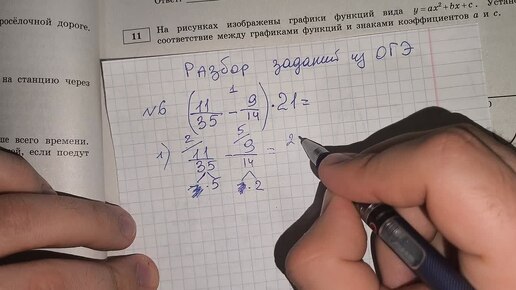 Ответ:
росёлочной дороге,
11 На рисунках изображены графики функций вида y=ax²+bx+c. Устано
соответствие между графиками функций и знаками коэффициентов a и c.
на станцию через
ше всего времени.
й, если поедут
РАЗБОР заданий из ОГЭ
1
№6 (11/35 - 9/14) · 21 =
2 5
1) 11/35 - 9/14 = 2
7·5 7·2